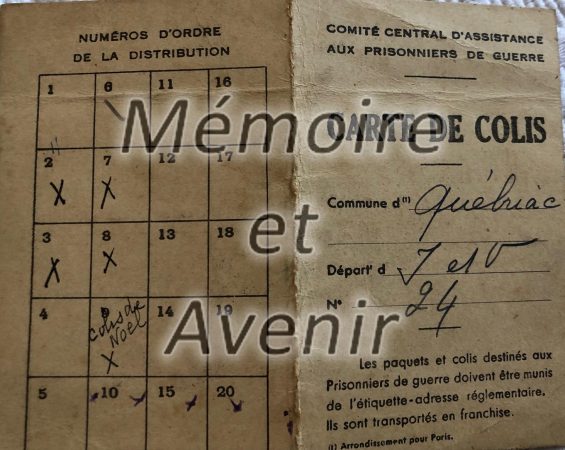 NUMÉROS D'ORDRE
DE LA DISTRIBUTION
1 6 11 16
2 7 12 17
X X
3 8 13 18
X X
4 9 14 19
colis de
Noël
X
5 10 15 20
COMITÉ CENTRAL D'ASSISTANCE
AUX PRISONNIERS DE GUERRE
CARTE DE COLIS
Commune d(1) Québriac
Départ' d I et V
N° 24
Les paquets et colis destinés aux
Prisonniers de guerre doivent être munis
de l'étiquette-adresse réglementaire.
Ils sont transportés en franchise.
(1) Arrondissement pour Paris.
Mémoire
et
Avenir